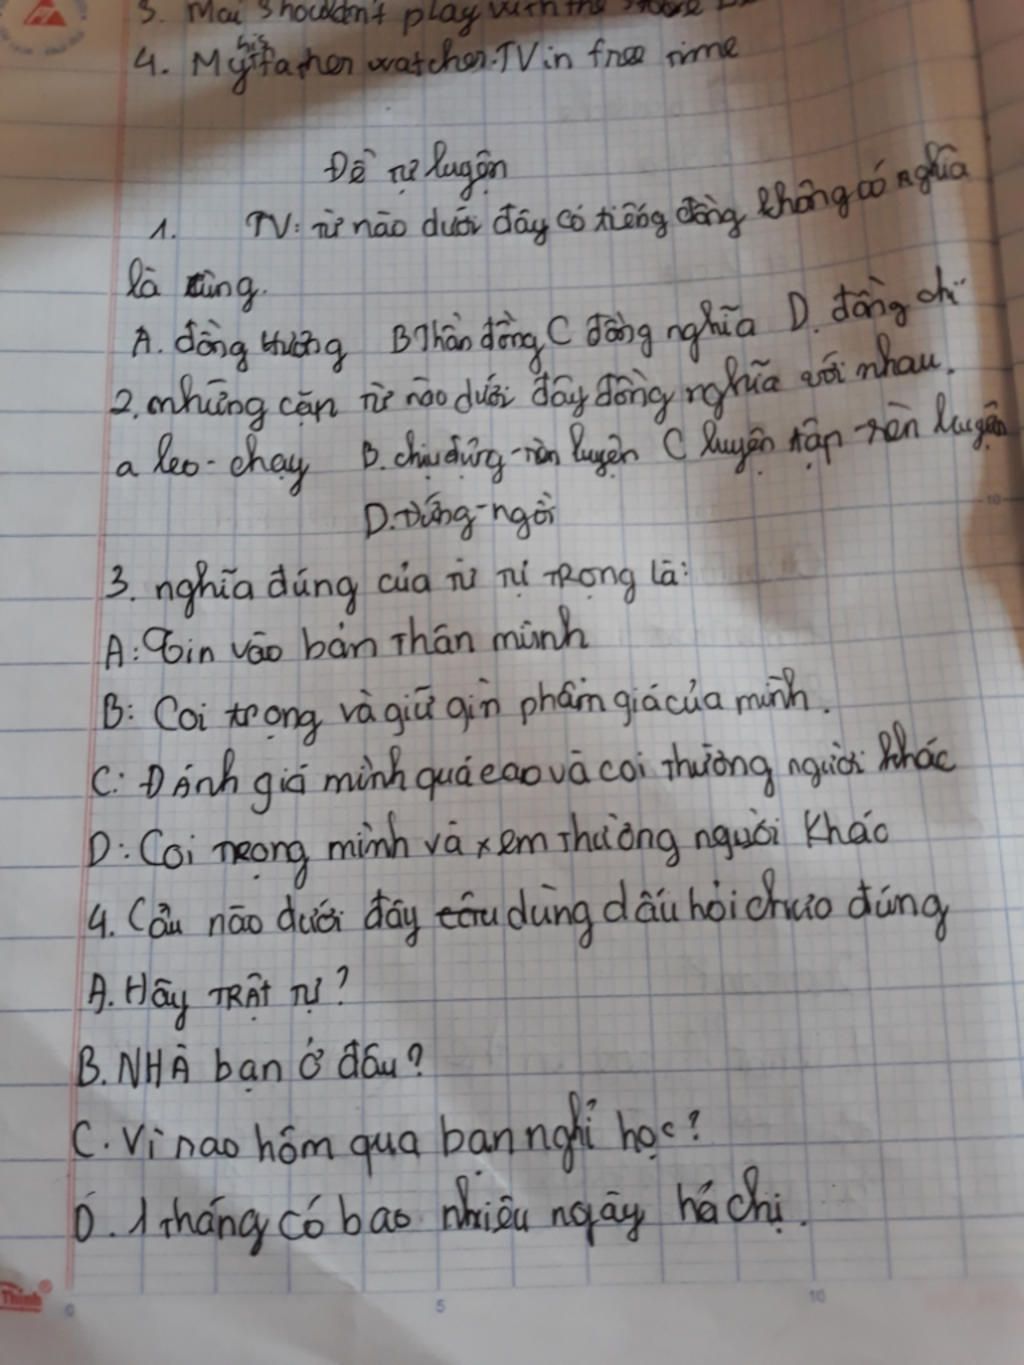 3. Mai Shouldn't play with the
4. My father watches TV in his free time
Đề tự luyện
1. TV: từ nào dưới đây có tiếng đồng không có nghĩa
là cùng.
A. đồng hương B Thần đồng C đồng nghĩa D. đồng chí
2. những cặp từ nào dưới đây đồng nghĩa với nhau.
a leo - chạy B. chịu đựng - rèn luyện C luyện tập - rèn luyện
D. Đứng - ngồi
3. nghĩa đúng của từ tự TRọng là:
A: Tin vào bản Thân mình
B: Coi trọng và giữ gìn phẩm giá của mình.
C: Đánh giá mình quá cao và coi Thường người khác
D: Coi TRọng mình và xem Thường người Khác
4. Câu nào dưới đây dùng dấu hỏi chưa đúng
A. Hãy TRẬt Tự?
B. NHÀ bạn ở đâu?
C. Vì sao hôm qua bạn nghỉ học?
D. 1 tháng có bao nhiêu ngày hả chị.
Thinh
0 5 10
10